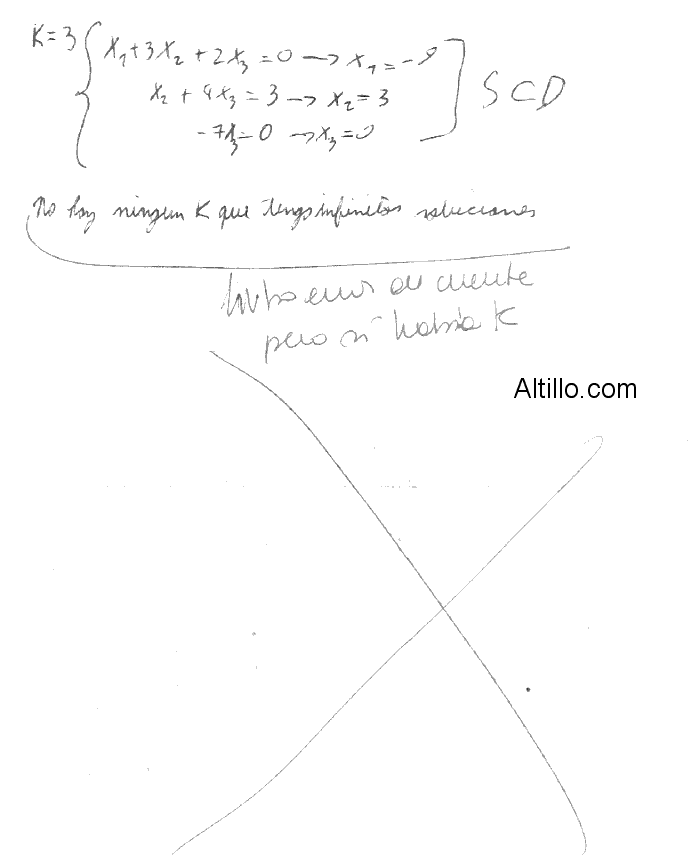 K=3 { x₁+3x₂+2x₃=0 → x₁=-9
x₂+4x₃=3 → x₂=3 ] SCD
-7x₃=0 → x₃=0
No hay ningun K que tenga infinitas soluciones
hubo error de cuenta
pero sí había K
Altillo.com